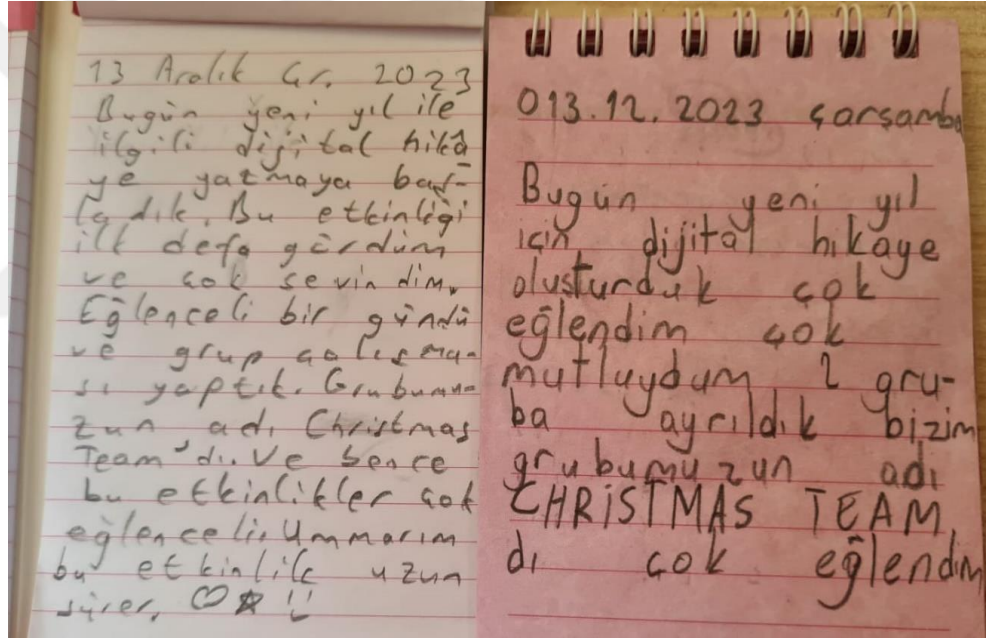 13 Aralık Çr. 2023
Bugün yeni yıl ile
ilgili dijital hikâ
ye yatmaya baş-
ladık. Bu etkinliği
ilk defa gördüm
ve çok sevindim.
Eğlenceli bir gündü
ve grup çalışma-
sı yaptık. Grubumu-
zun adı Christmas
Team'di. Ve bence
bu etkinlikler çok
eğlenceli. Ummarım
bu etkinlik uzun
sürer.
013.12.2023 çarşamba
Bugün yeni yıl
için dijital hikaye
olusturduk çok
eğlendim çok
mutluydum 2 gru-
ba ayrıldık bizim
grubumuzun adı
CHRİSTMAS TEAM
dı çok eğlendim